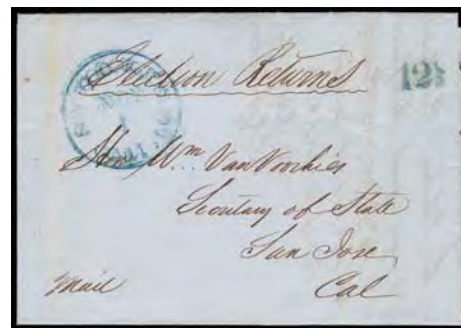 Election Returns
12½
Hon Wm VanVoorhies
Secretary of State
San Jose
Mail Cal